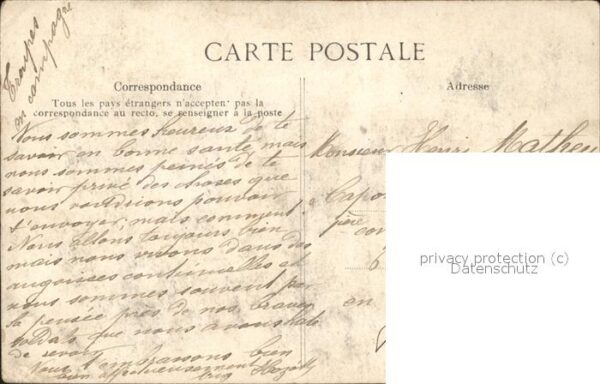 Troupes
en campagne
CARTE POSTALE
Correspondance
Tous les pays étrangers n'acceptent pas la
correspondance au recto, se renseigner à la poste
Nous sommes heureux de te
savoir en bonne santé, mais
nous sommes peinés de te
savoir privé des choses que
nous voudrions pouvoir
t'envoyer, mais comment!
Nous allons toujours bien
mais nous vivons dans des
angoisses continuelles et
nous sommes souvent par
la pensée près de nos braves
soldats que nous avons hâte
de revoir
Nous t'embrassons bien
bien affectueusement
Adresse
Monsieur Henri Mathey
Capo
père
con
6
en
privacy protection (c)
Datenschutz